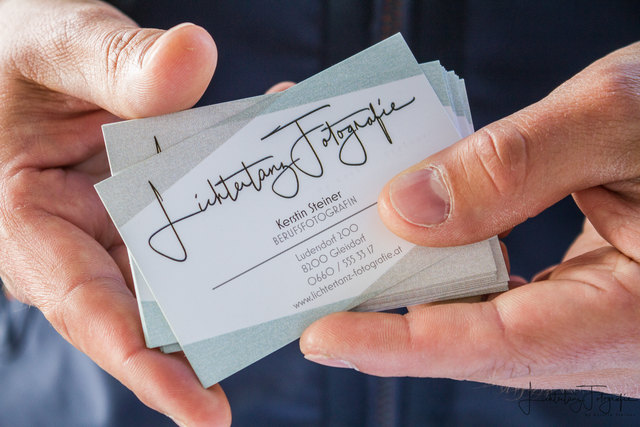 Lichtertanz Fotografie
Kerstin Steiner
BERUFSFOTOGRAFIN
Ludendorf 200
8200 Gleisdorf
0660 / 555 33 17
www.lichtertanz-fotografie.at
Lichtertanz Fotografie